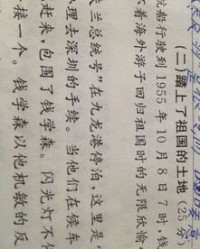 (二)踏上了祖国的土地(25分
船行驶到1955年10月8日7时,钱
着海外游子回归祖国时的无限欣愉
兰总统号”在九龙港停泊,这里是
理去深圳的手续。当他们在候车
赶来,包围了钱学森。闪光灯不
接一个。钱学森以他机敏的反